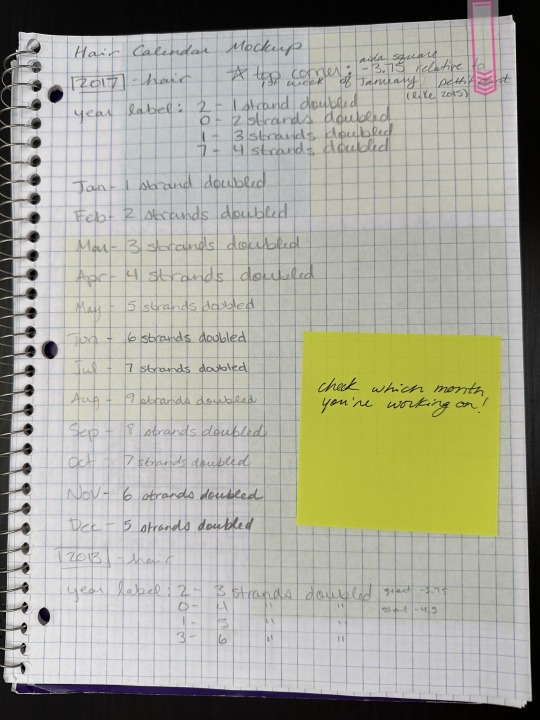 Hair Calendar Mockup
[2017] - hair ☆ top corner: aida square
-3.75 relative to
1st week of January, petit point
(like 2015)
year label: 2 - 1 strand doubled
0 - 2 strands doubled
1 - 3 strands doubled
7 - 4 strands doubled
Jan - 1 strand doubled
Feb - 2 strands doubled
Mar - 3 strands doubled
Apr - 4 strands doubled
May - 5 strands doubled
Jun - 6 strands doubled
Jul - 7 strands doubled
Aug - 9 strands doubled
Sep - 8 strands doubled
Oct - 7 strands doubled
Nov - 6 strands doubled
Dec - 5 strands doubled
check which month
you're working on!
[2013] - hair
year label: 2 - 3 strands doubled start -3.75
0 - 4 " " start -4.5
1 - 5 " "
3 - 6 " "